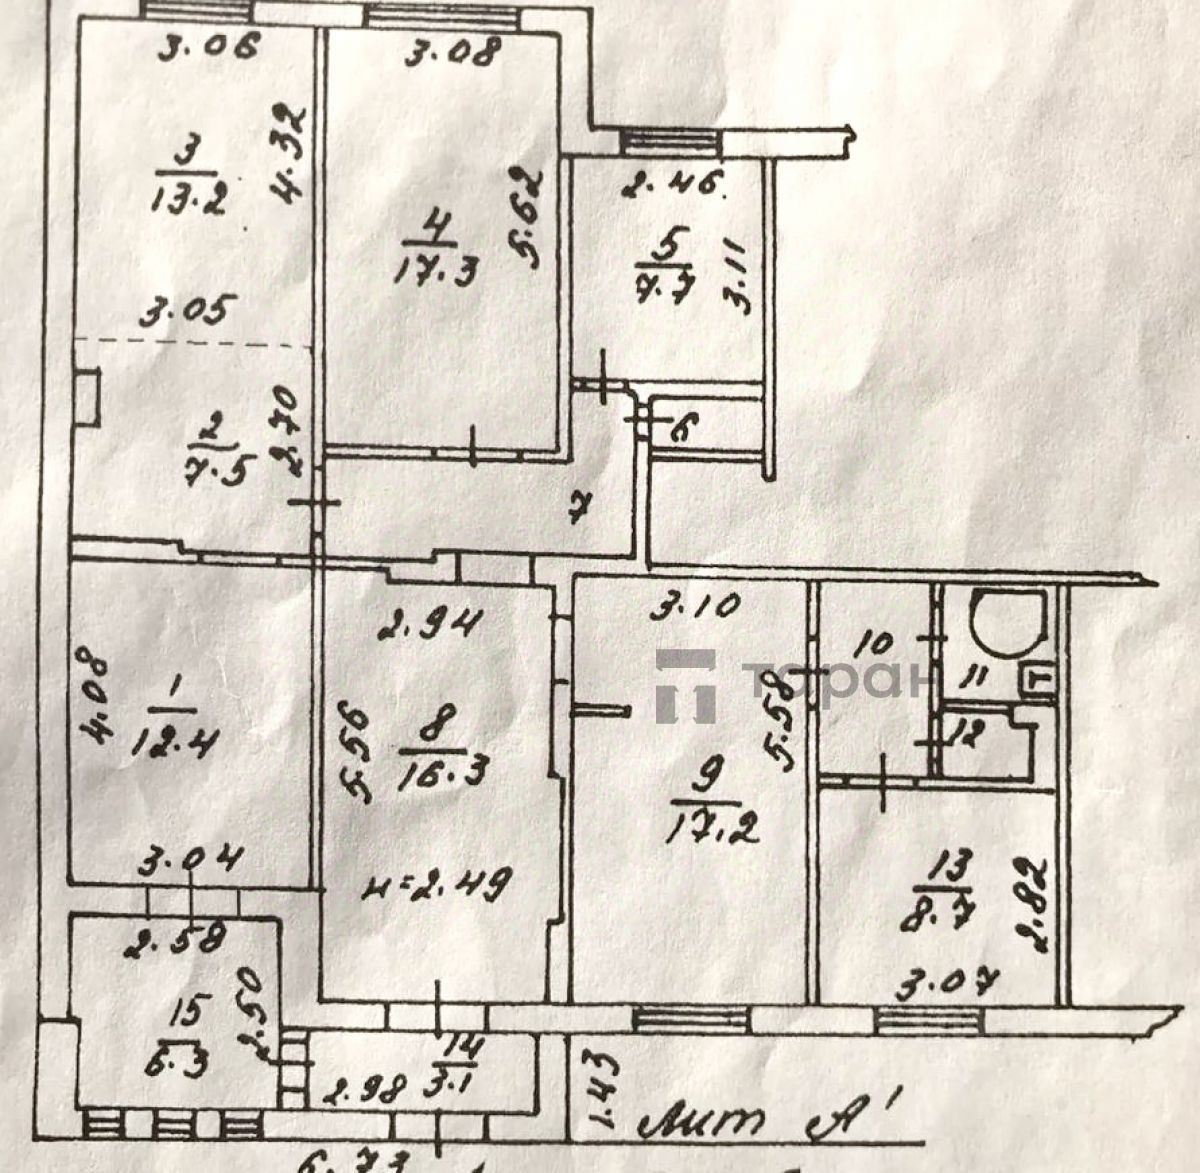 3.06
3.08
4.32
3
13.2
2.46
5.62
4
17.3
5
7.7
3.11
3.05
2.70
2
7.5
6
7
2.94
3.10
10
11
Т
4.08
1
12.4
5.56
8
16.3
торан
5.58
12
9
17.2
3.04
н=2.49
13
8.7
2.82
2.58
3.07
2.50
15
6.3
14
3.1
2.98
1.43
Лит А'
6.73